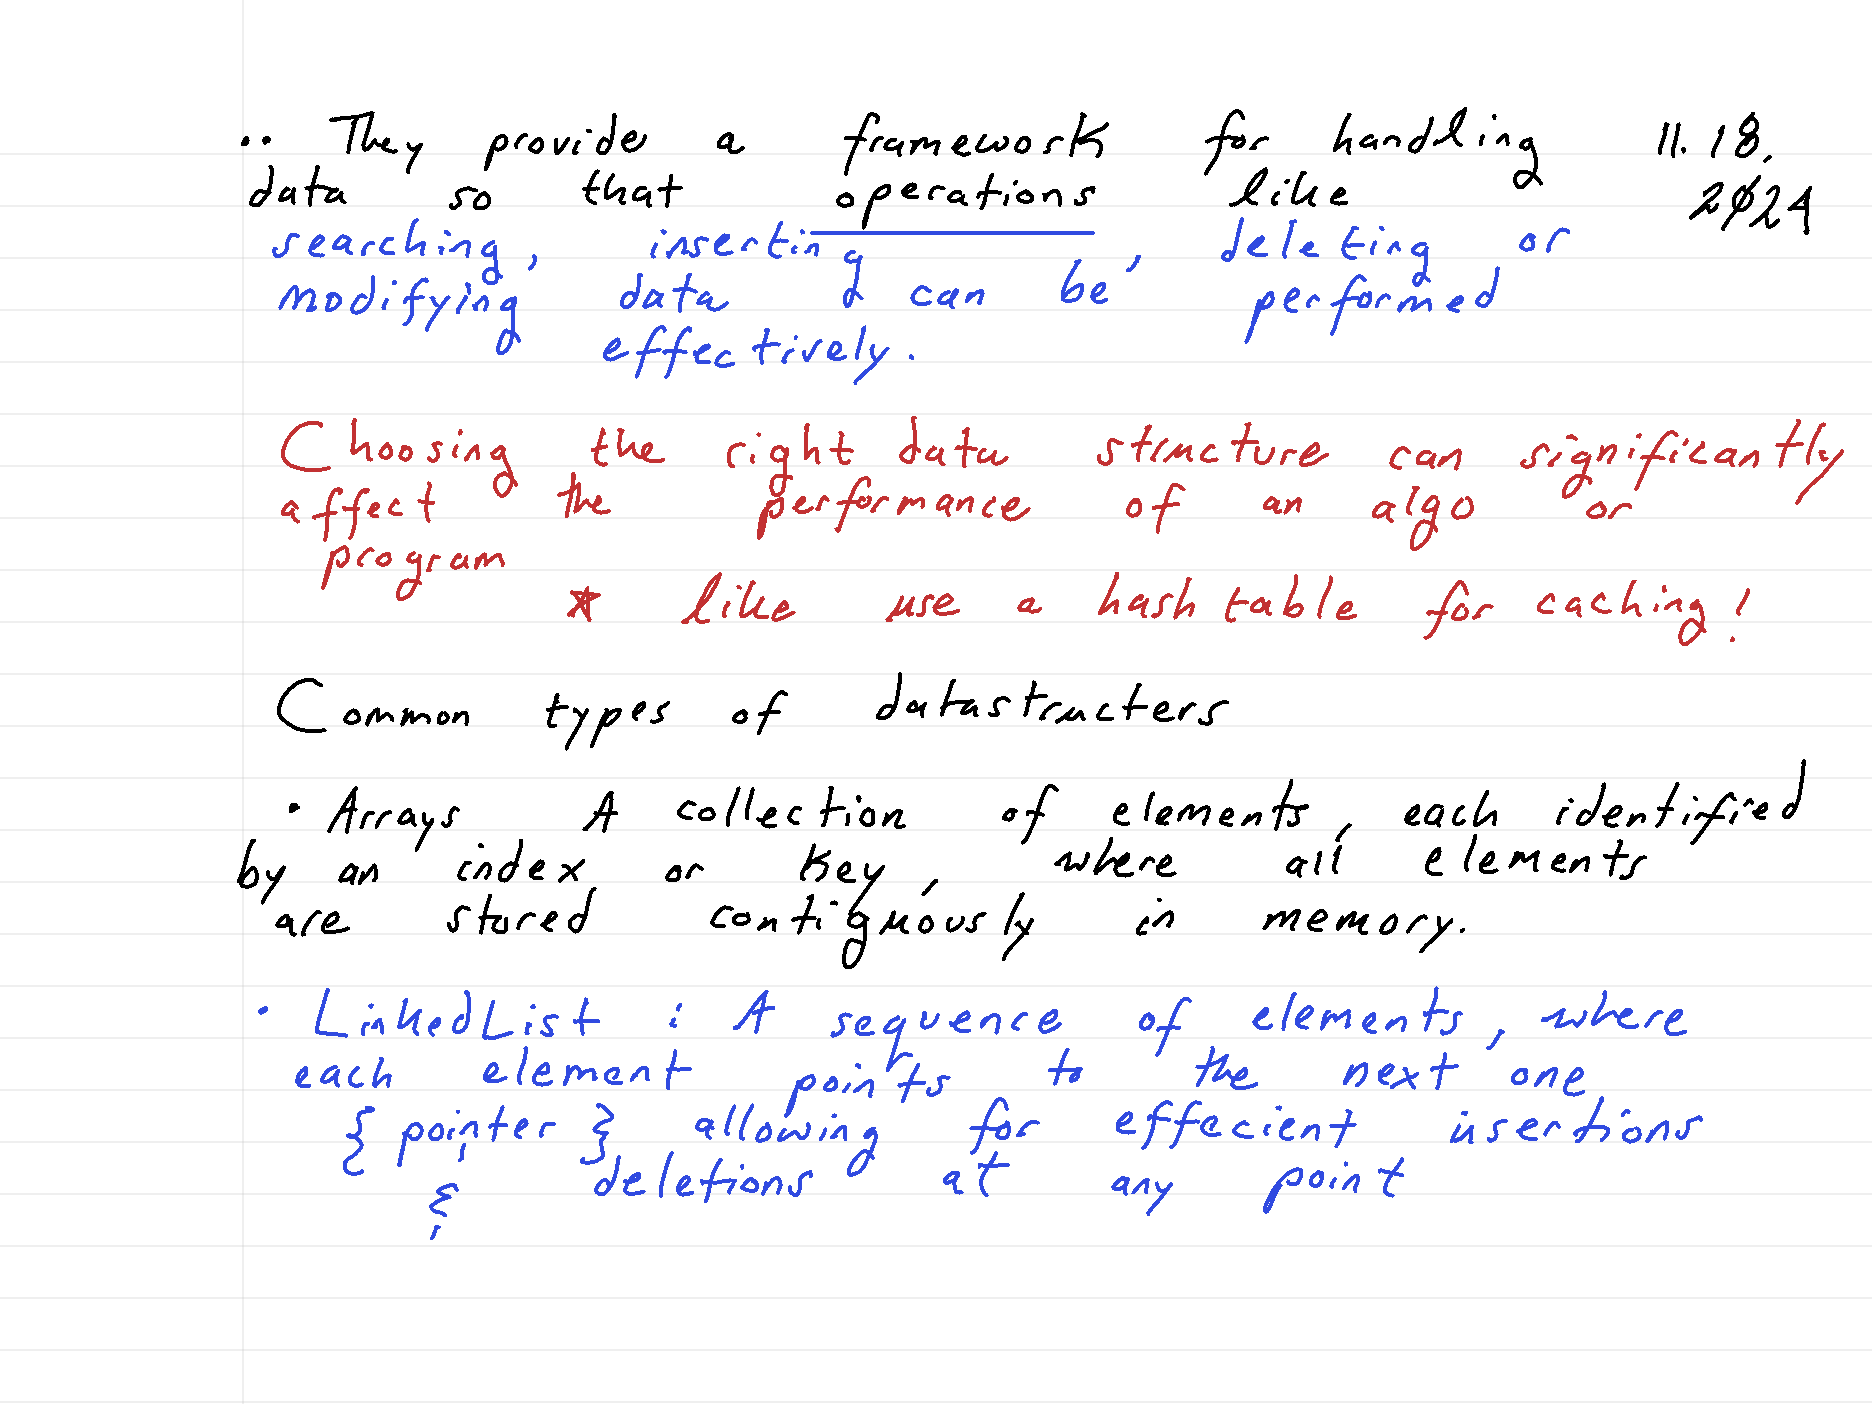 .. They provide a framework for handling 11. 18,
data so that operations like 2024
searching, inserting, deleting or
modifying data can be performed
effectively.
Choosing the right data structure can significantly
affect the performance of an algo or
program
* like use a hash table for caching!
Common types of datastructers
• Arrays A collection of elements, each identified
by an index or key, where all elements
are stored contiguously in memory.
• LinkedList : A sequence of elements, where
each element points to the next one
{ pointer } allowing for effecient insertions
& deletions at any point